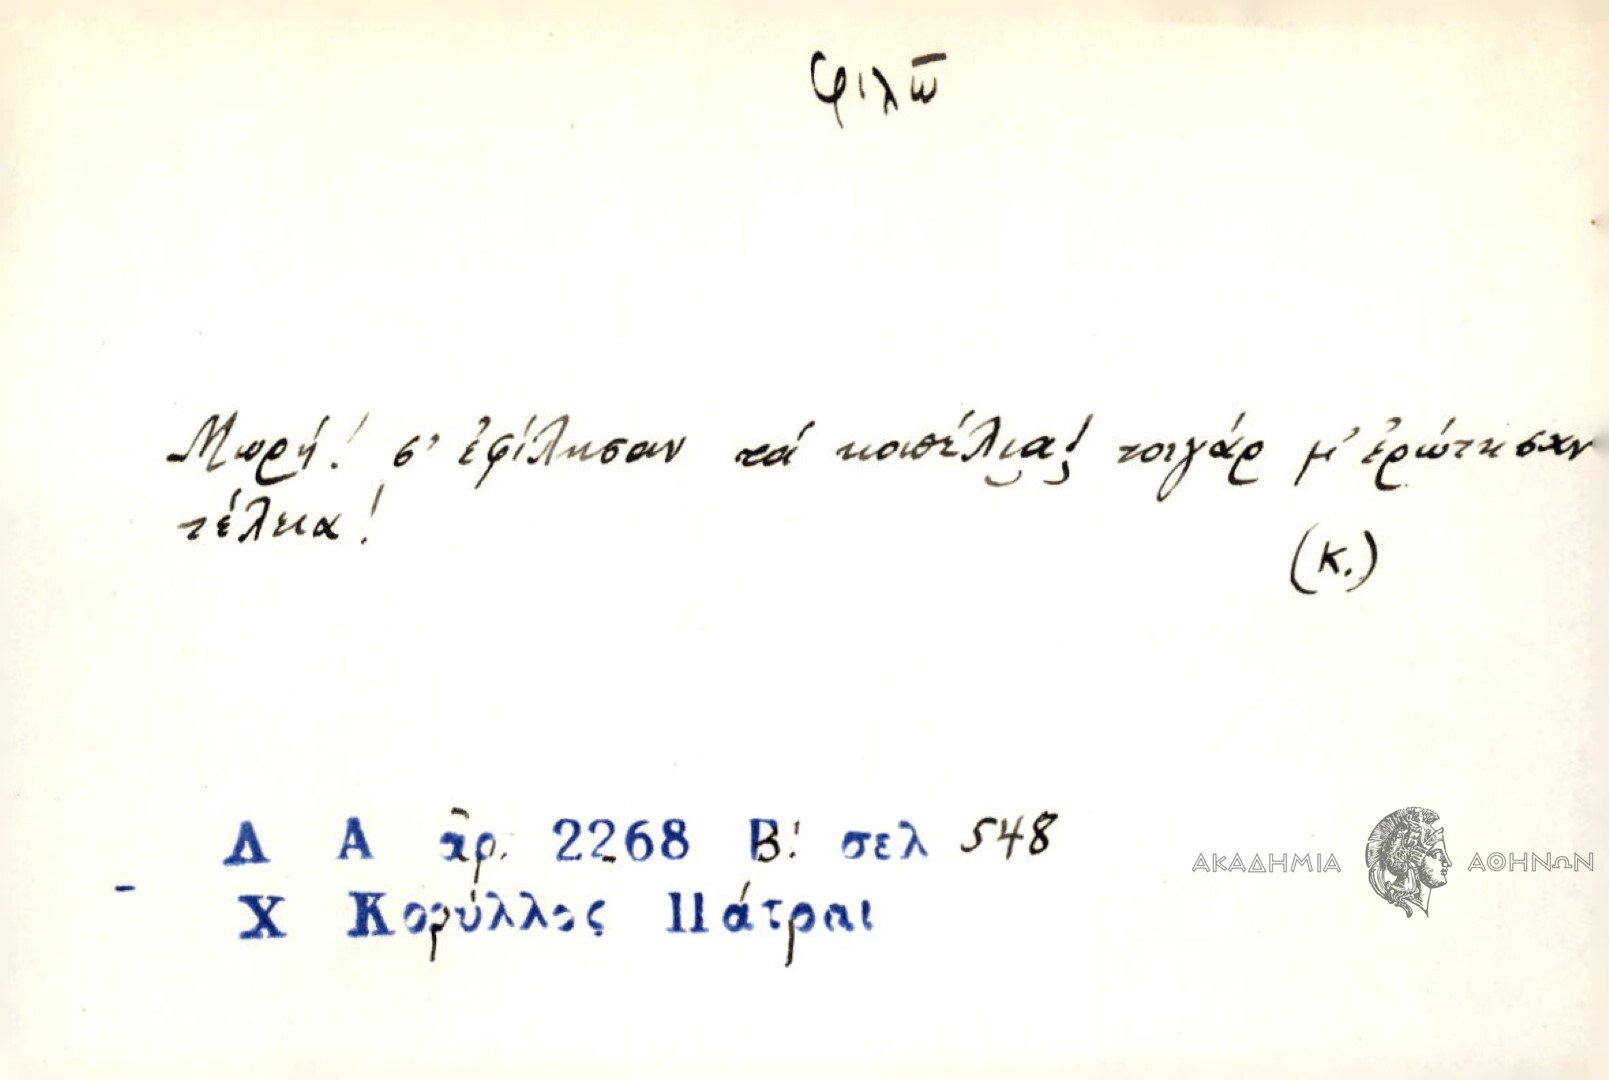 φιλῶ
Μωρή! σ' ἐφίλησαν τά κοπέλια! τσιγάρ μ' ἐρώτησαν
τέλεια!
(κ.)
Λ Α ἀρ. 2268 Β! σελ 548
Χ Κορύλλος Πάτραι
ΑΚΑΔΗΜΙΑ ΑΘΗΝΩΝ